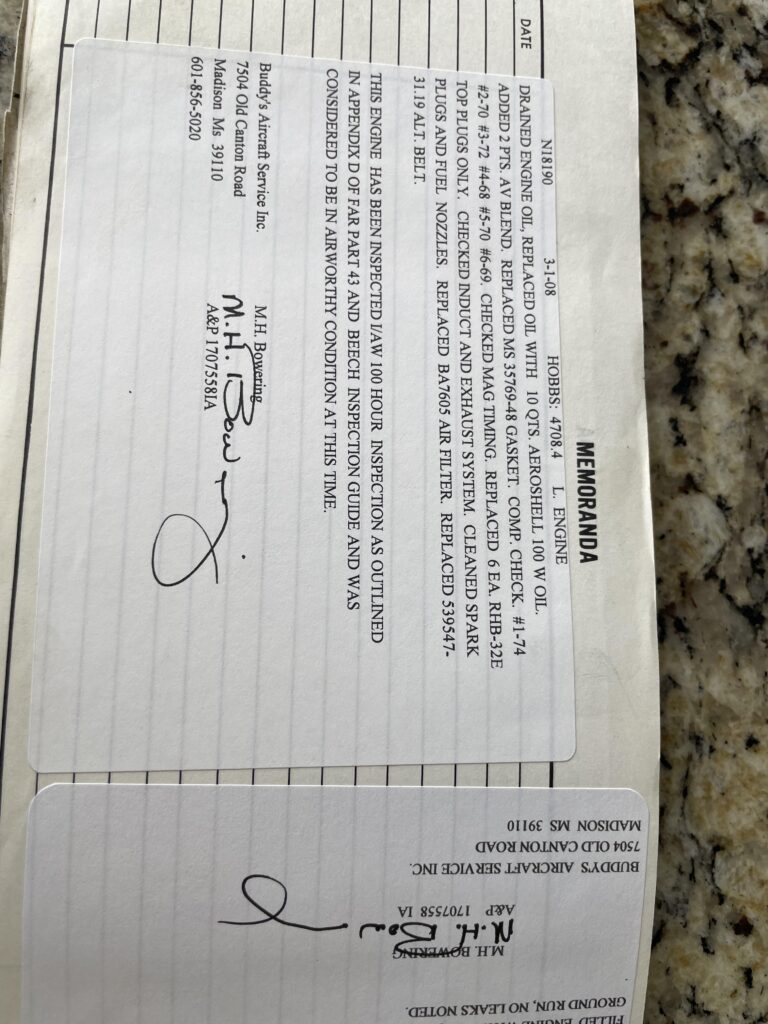 MEMORANDA
DATE
N18190 3-1-08 HOBBS: 4708.4 L. ENGINE
DRAINED ENGINE OIL, REPLACED OIL WITH 10 QTS. AEROSHELL 100 W OIL.
ADDED 2 PTS. AV BLEND. REPLACED MS 35769-48 GASKET. COMP. CHECK. #1-74
#2-70 #3-72 #4-68 #5-70 #6-69. CHECKED MAG TIMING. REPLACED 6 EA. RHB-32E
TOP PLUGS ONLY. CHECKED INDUCT AND EXHAUST SYSTEM. CLEANED SPARK
PLUGS AND FUEL NOZZLES. REPLACED BA7605 AIR FILTER. REPLACED 539547-
31.19 ALT. BELT.
THIS ENGINE HAS BEEN INSPECTED I/AW 100 HOUR INSPECTION AS OUTLINED
IN APPENDIX D OF FAR PART 43 AND BEECH INSPECTION GUIDE AND WAS
CONSIDERED TO BE IN AIRWORTHY CONDITION AT THIS TIME.
Buddy's Aircraft Service Inc.
7504 Old Canton Road
Madison Ms 39110
601-856-5020
M.H. Bowering
M.H. Bow
A&P 1707558IA
FILLED ENGINE
GROUND RUN, NO LEAKS NOTED.
M.H. BOWERING
A&P 1707558 IA
BUDDY'S AIRCRAFT SERVICE INC.
7504 OLD CANTON ROAD
MADISON MS 39110